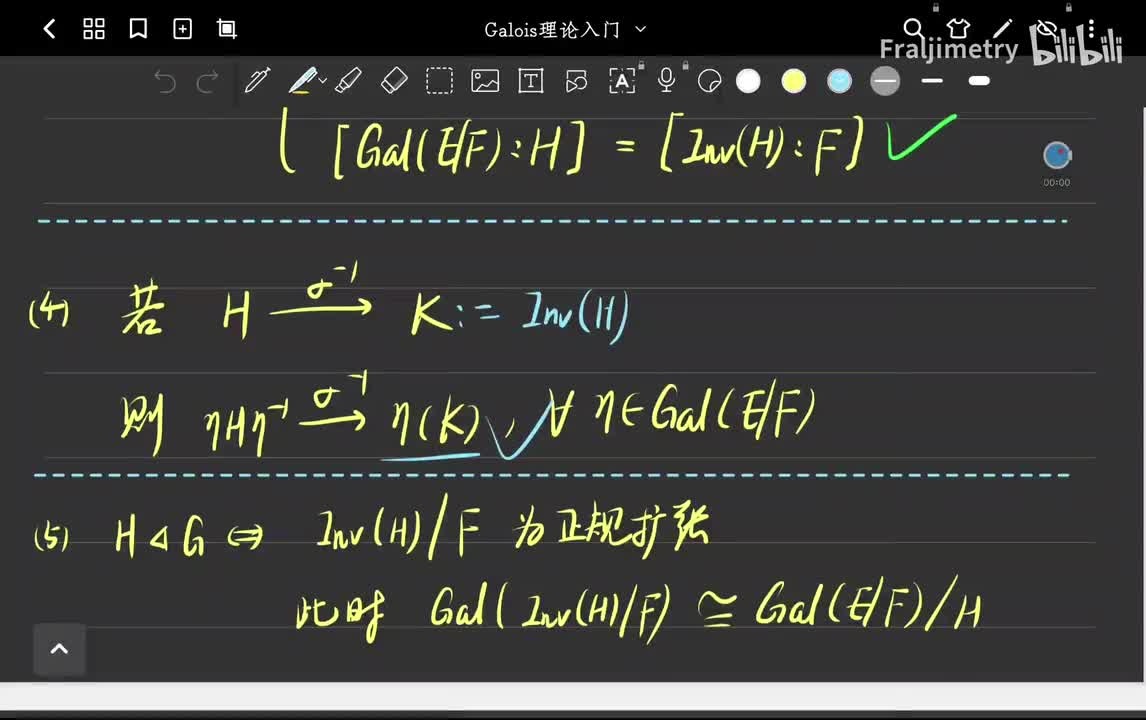 Galois理论入门
Fraljimetry bilibili
[Gal(E/F):H] = [Inv(H):F]
00:00
(4) 若 H σ⁻¹→ K:= Inv(H)
则 ηHη⁻¹ σ⁻¹→ η(K), ∀ η∈Gal(E/F)
(5) H ◁ G ⇔ Inv(H)/F 为正规扩张
此时 Gal(Inv(H)/F) ≅ Gal(E/F)/H